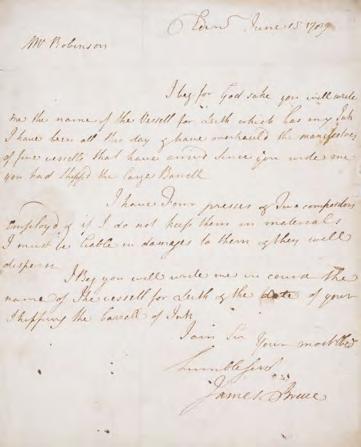 Edinr June 15 1789
Mr Robinson
I beg for God sake you will write
me the name of the Vessell for Leith which has my Ink
I have been all this day & have overhauld the manifestoes
of five vessells that have arrivd since you wrote me
you had shipped the large Barrell
I have Four presses & Two compositors
Employd & if I do not keep them in materials
I must be liable in damages to them & they will
disperse
I Beg you will write me in course the
name of the vessell for Leith & the date of your
Shipping the barrell of Ink
I am Sir Your most Obed
humble Servt
James Bruce